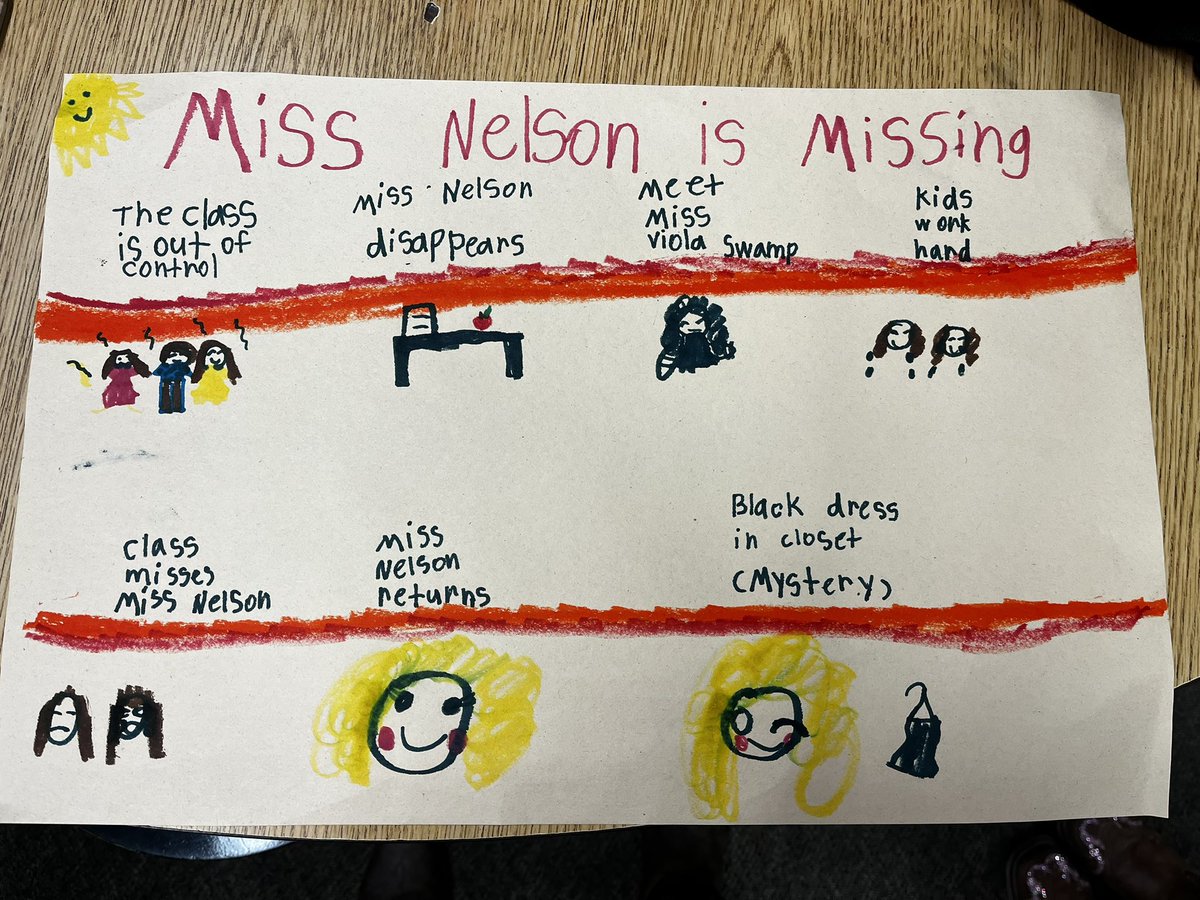 Miss Nelson is Missing
The class
is out of
control
Miss Nelson
disappears
Meet
Miss
Viola Swamp
Kids
work
hand
class
misses
Miss Nelson
Miss
Nelson
returns
Black dress
in closet
(Mystery)